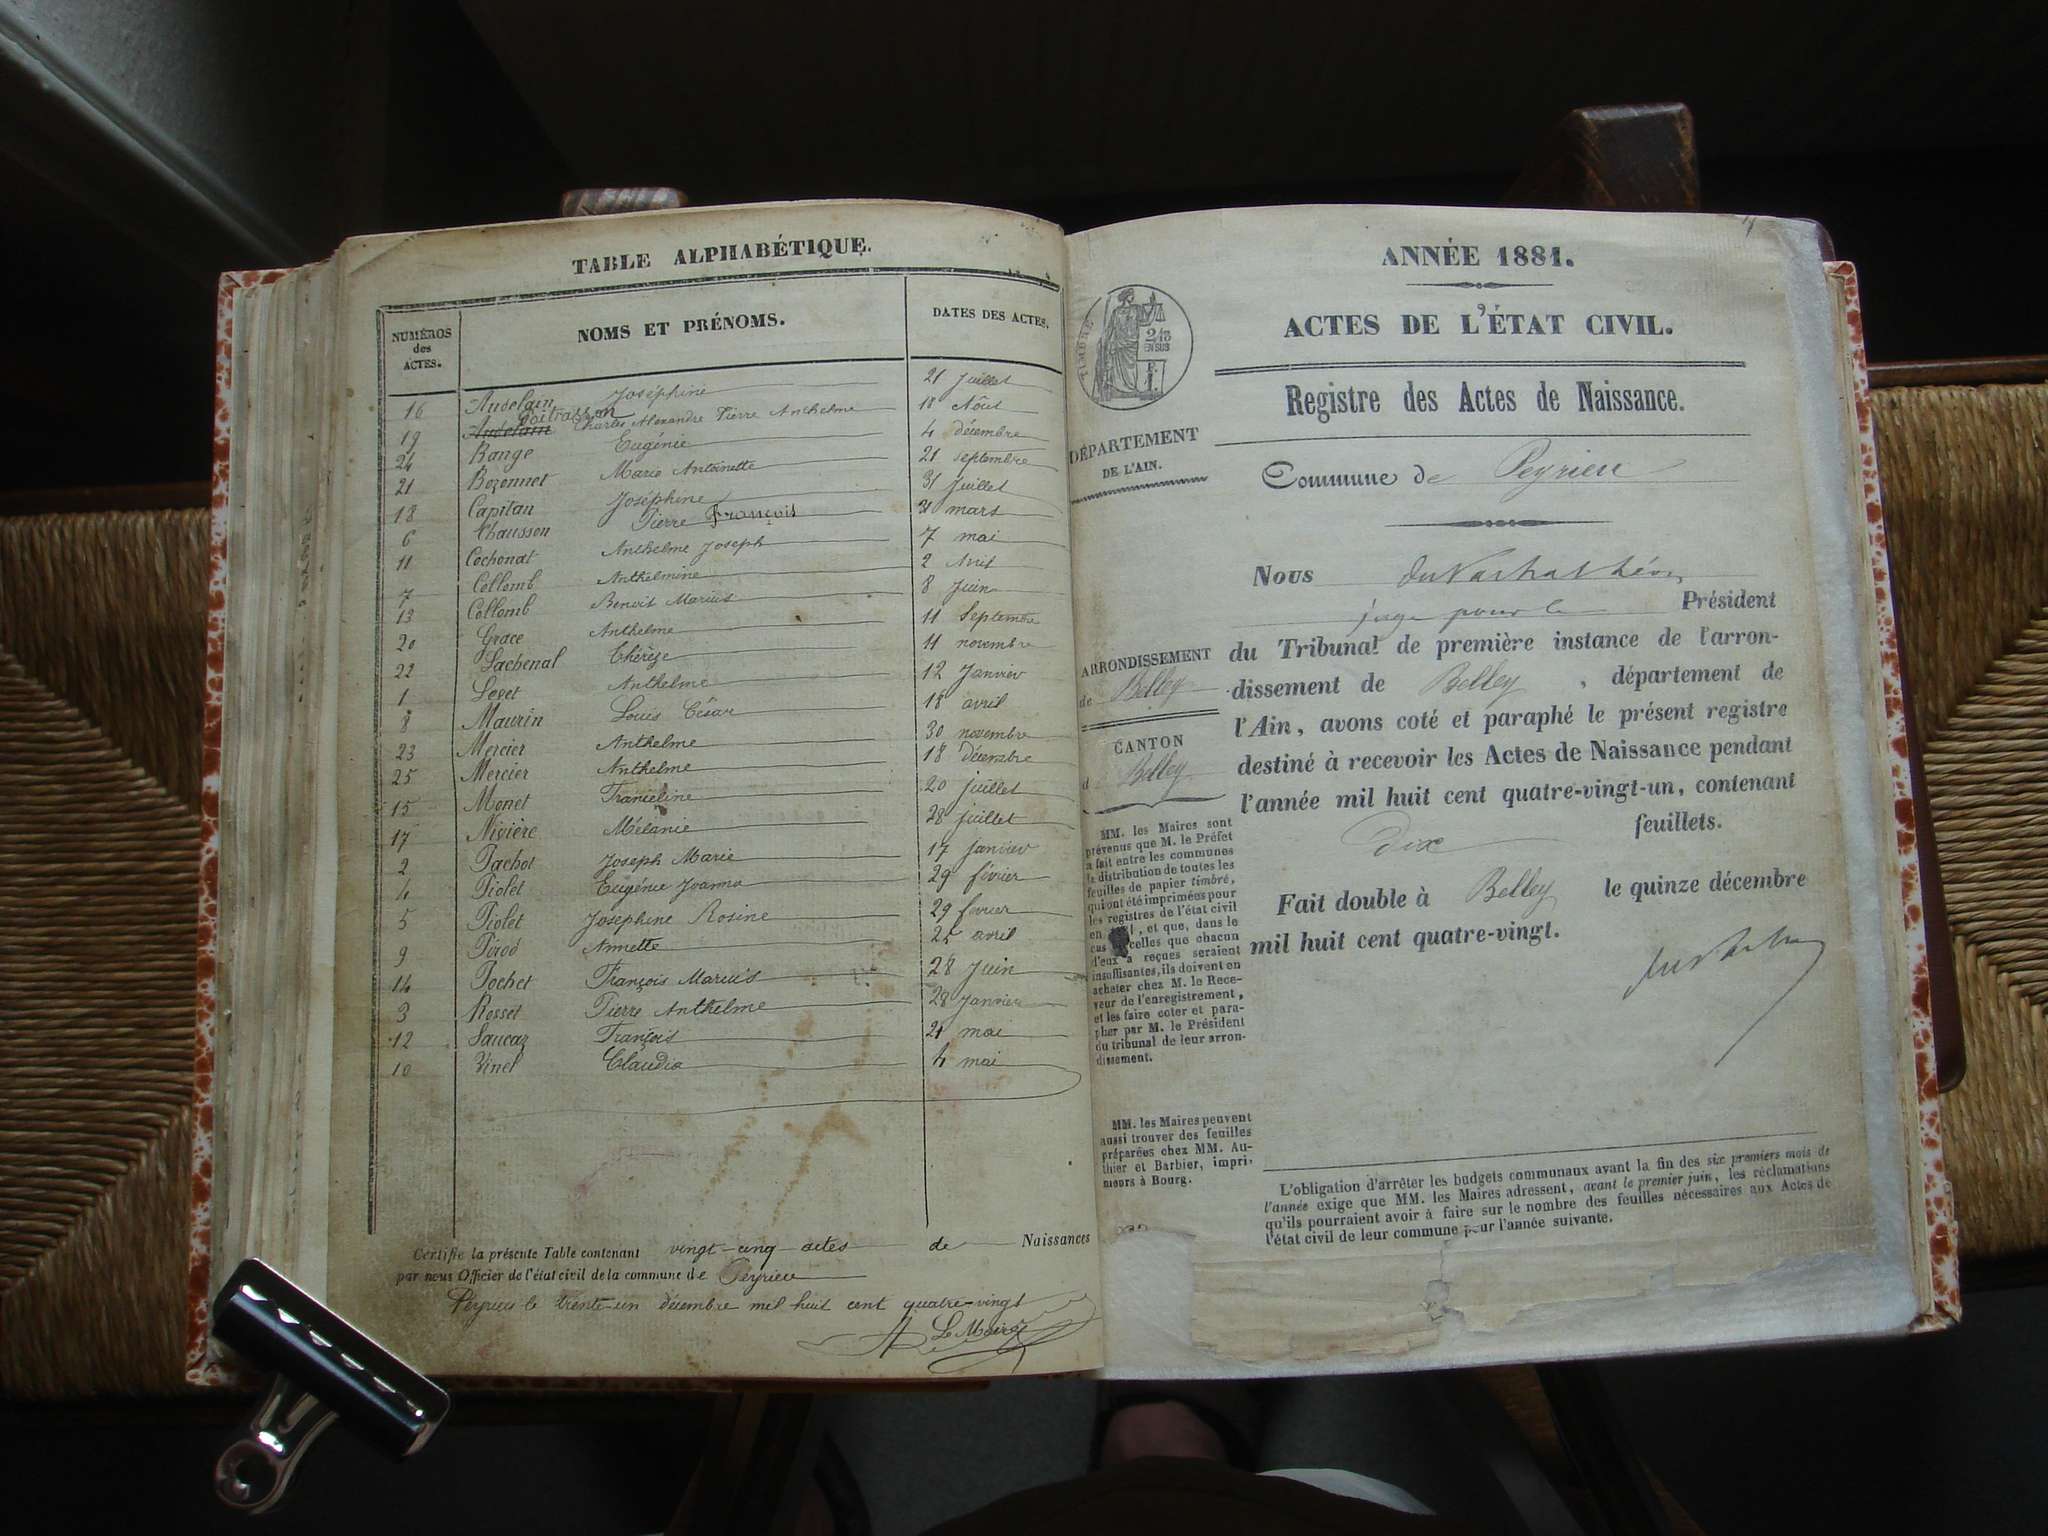 TABLE ALPHABÉTIQUE.
NUMÉROS des ACTES. NOMS ET PRÉNOMS. DATES DES ACTES.
16 Audelain Joséphine 21 Juillet
Poitrasson
19 Audelain Charles Alexandre Pierre Anthelme 18 Août
24 Range Eugénie 4 décembre
21 Bozonnet Marie Antoinette 21 septembre
18 Capitan Joséphine 31 Juillet
6 Chausson Pierre François 31 mars
11 Cochonat Anthelme Joseph 7 mai
7 Collomb Anthelmine 2 Avril
13 Collomb Benoit Marius 8 Juin
20 Grace Anthelme 11 Septembre
22 Lachenal Thérèse 11 novembre
1 Leget Anthelme 12 Janvier
8 Maurin Louis César 18 avril
23 Mercier Anthelme 30 novembre
25 Mercier Anthelme 18 décembre
15 Monet Francéline 20 juillet
17 Nivière Mélanie 28 juillet
2 Pachot Joseph Marie 17 janvier
4 Piolet Eugénie Joanna 29 février
5 Piolet Joséphine Rosine 29 février
9 Pirod Annette 25 avril
14 Pochet François Marius 28 Juin
3 Rosset Pierre Anthelme 28 Janvier
12 Saucaz François 21 mai
10 Vinel Claudia 4 mai
Certifié la présente Table contenant vingt-cinq actes de Naissances
par nous Officier de l'état civil de la commune de Peyrieu
Peyrieu le trente-un décembre mil huit cent quatre-vingt
Le Maire
ANNÉE 1881.
ACTES DE L'ÉTAT CIVIL.
TIMBRE
2/10
EN SUS
1 F.
Registre des Actes de Naissance.
DÉPARTEMENT
DE L'AIN.
Commune de Peyrieu
Nous
juge pour le Président
ARRONDISSEMENT
de Belley
du Tribunal de première instance de l'arron-
dissement de Belley, département de
l'Ain, avons coté et paraphé le présent registre
CANTON
d Belley
destiné à recevoir les Actes de Naissance pendant
l'année mil huit cent quatre-vingt-un, contenant
dix feuillets.
Fait double à Belley le quinze décembre
mil huit cent quatre-vingt.
MM. les Maires sont
prévenus que M. le Préfet
a fait entre les communes
la distribution de toutes les
feuilles de papier timbré,
qui ont été imprimées pour
les registres de l'état civil
en , et que, dans le
cas celles que chacun
d'eux a reçues seraient
insuffisantes, ils doivent en
acheter chez M. le Rece-
veur de l'enregistrement,
et les faire coter et para-
pher par M. le Président
du tribunal de leur arron-
dissement.
MM. les Maires peuvent
aussi trouver des feuilles
préparées chez MM. Au-
thier et Barbier, impri-
meurs à Bourg.
L'obligation d'arrêter les budgets communaux avant la fin des six premiers mois de
l'année exige que MM. les Maires adressent, avant le premier juin, les réclamations
qu'ils pourraient avoir à faire sur le nombre des feuilles nécessaires aux Actes de
l'état civil de leur commune pour l'année suivante.